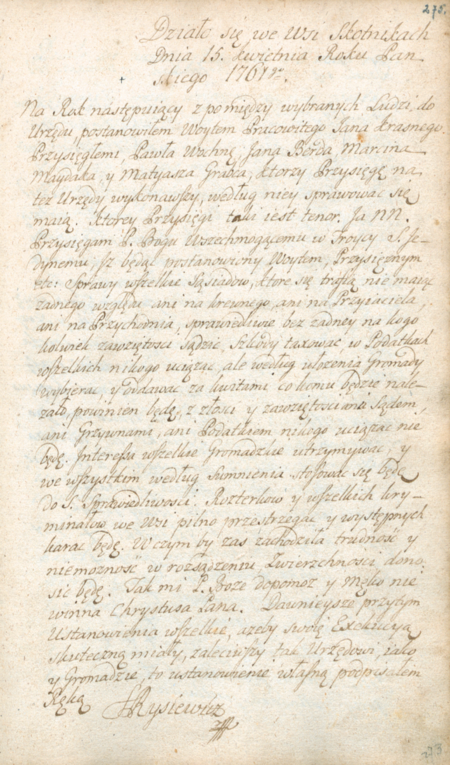 275.
Działo się we Wsi Skotnikach
Dnia 15. kwietnia Roku Pan
skiego 1761 r.
Na Rok następuiący z pomiędzy wybranych Ludzi, do
Urzędu postanowiłem Woytem Pracowitego Jana Krasnego.
Przysięgłemi, Pawła Wochnę, Jana Borda, Marcina
Maydaka, y Matyasza Grabca, ktorzy Przysięgę na
też Urzędy wykonawszy, według niey sprawować się
maią. Ktorey Przysięgi taki iest tenor. Ja NN.
Przysięgam P. Bogu Wszechmogącemu w Troycy S. Je-
dynemu, Jż będąc postanowiony Woytem, Przysięznym
etc: Sprawy wszelkie Sąsiadow, ktore się trafią, nie maiąc
zadnego względu ani na krewnego, ani na Przyiaciela,
ani na Przychodnia, sprawiedliwie bez zadney na kogo
kolwiek zawziętosci sądzić, Szkody taxować w Podatkach
wszelkich nikogo uciąząc, ale według ułozenia Gromady
wybierac, y oddawac za kwitami co komu będzie nale-
zało, powinien będę, z złosci y zawziętosci ani Sądem,
ani Grzywnami, ani Podatkiem nikogo uciązac nie
będę. Interessa wszelkie Gromadzkie utrzymywac, y
we wszystkim według Sumnienia stosować się będę
do S. Sprawiedliwosci. Rozterkow y wszelkich kry-
minałow we Wsi pilno przestrzegac y występnych
karac będę. W czym by zas zachodziła trudność y
niemozność w rozsądzeniu, Zwierzchnosci dono-
sic będę. Tak mi P. Boze dopomoz y Męko nie
winna Chrystusa Pana. Dawnieysze przytym
Ustanowienia wszelkie, azeby swoię Exekucyą
skuteczną miały, zaleciwszy tak Urzędowi, iako
y Gromadzie, to ustanowienie własną podpisałem
Ręką
JRysiewicz